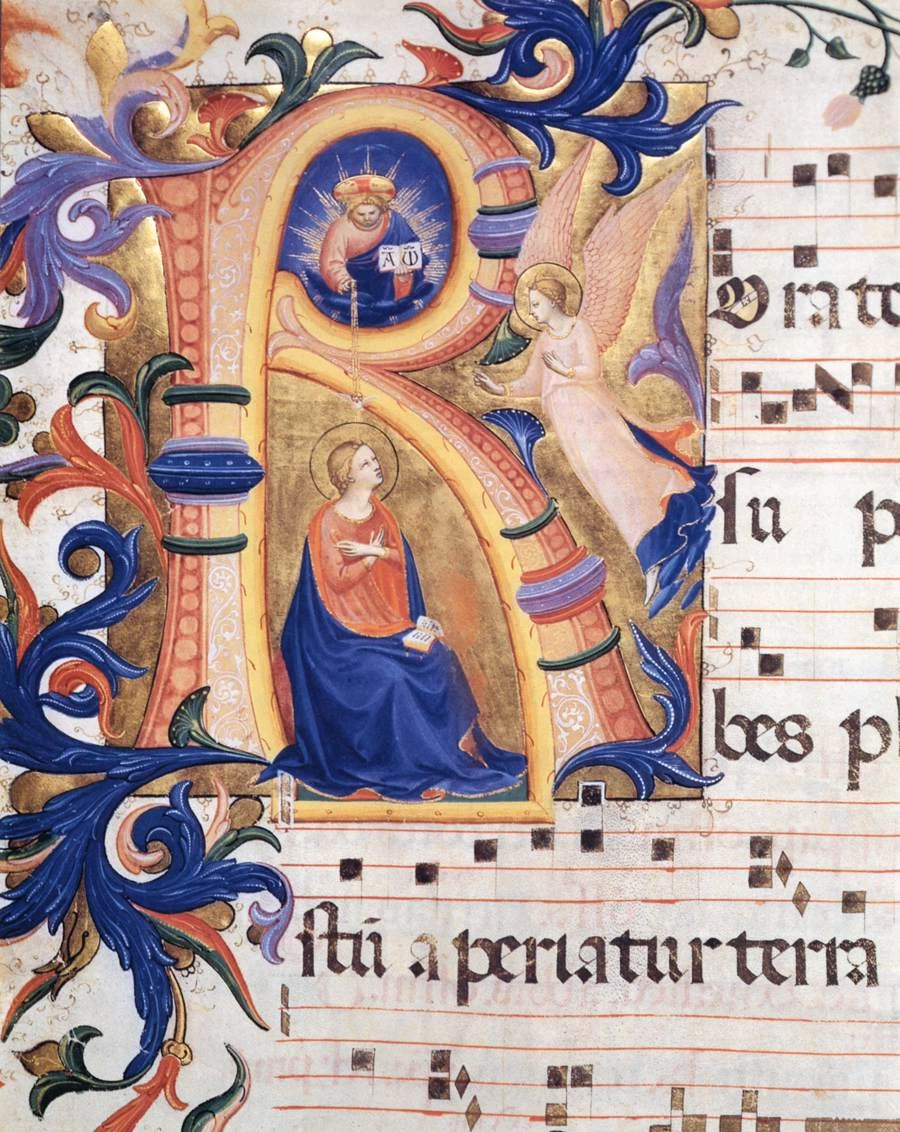 R
A Ω
Orate
su p
bes pl
stū aperiatur terra